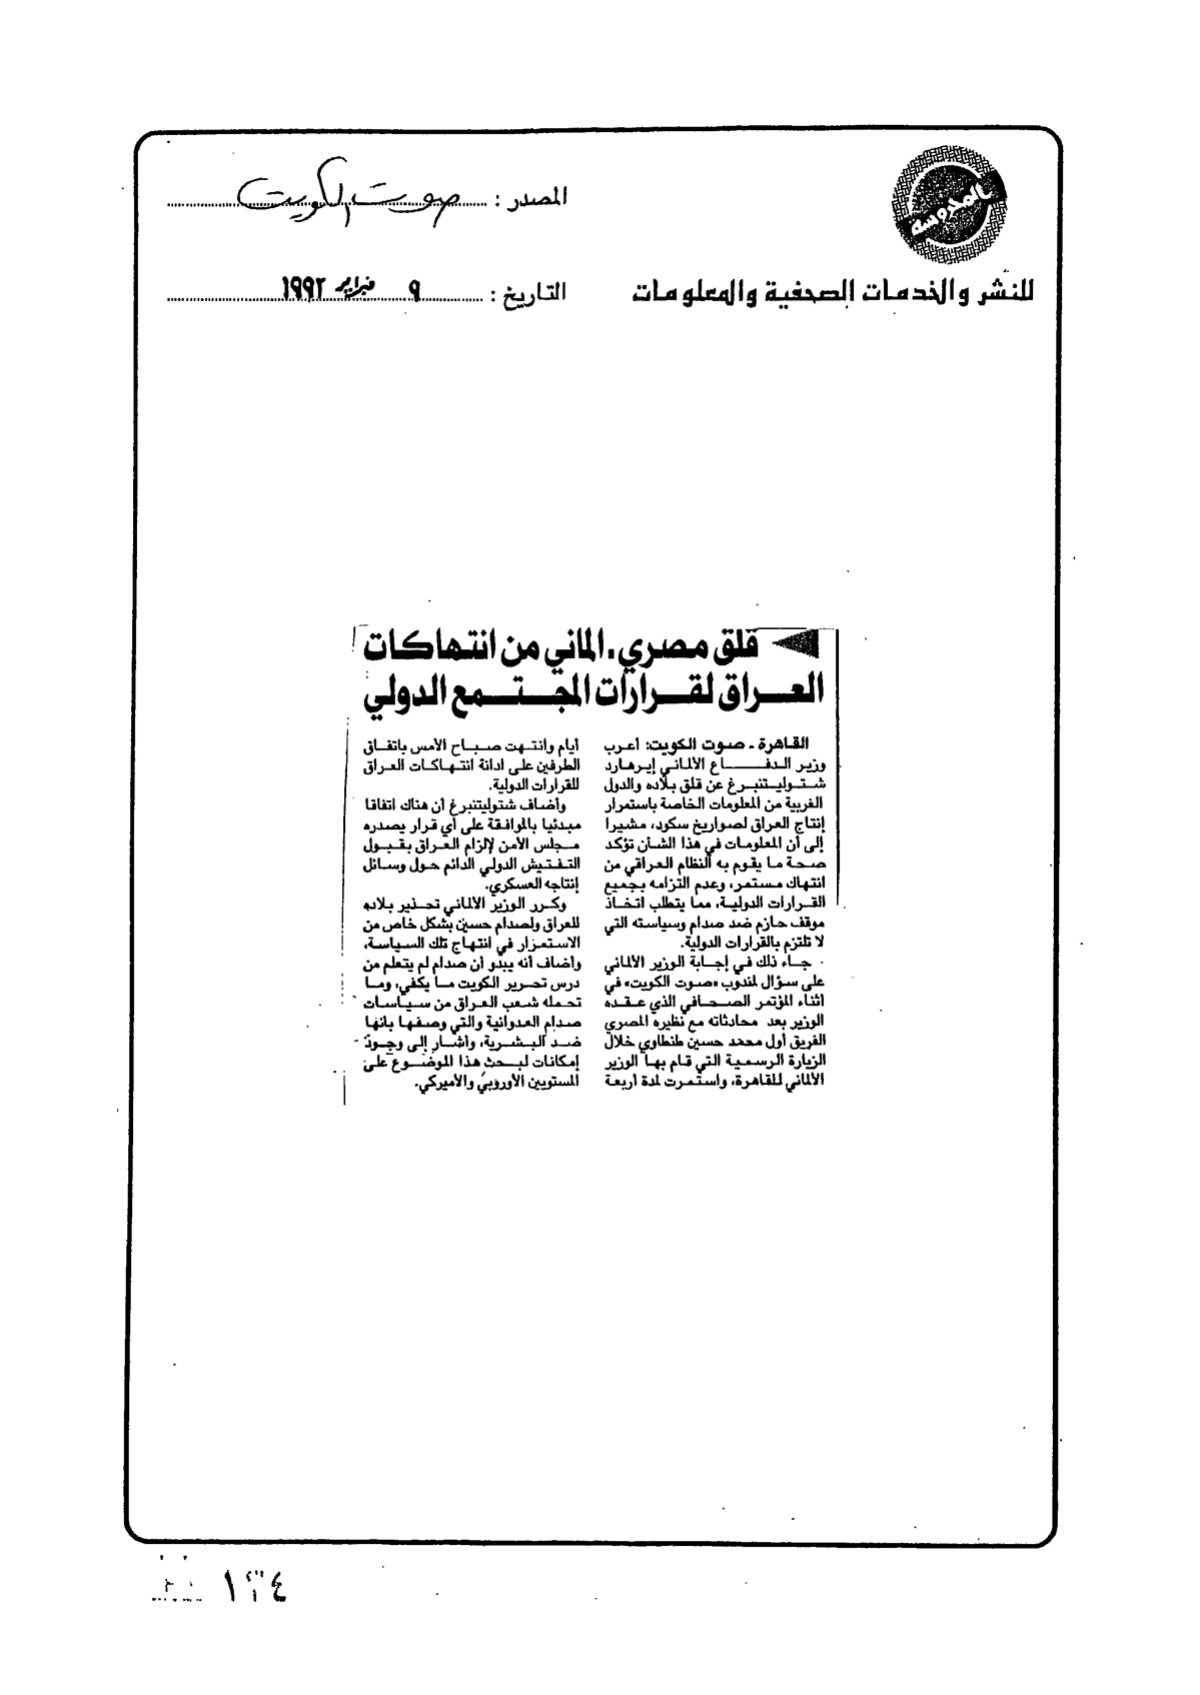 المحروسة
المصدر : صوت الكويت
للنشر والخدمات الصحفية والمعلومات
التاريخ : ٩ فبراير ١٩٩٢
قلق مصري ـ الماني من انتهاكات
العراق لقرارات المجتمع الدولي
القاهرة ـ صوت الكويت: أعرب
وزير الدفاع الألماني إيرهارد
شتوليتنبرغ عن قلق بلاده والدول
الغربية من المعلومات الخاصة باستمرار
إنتاج العراق لصواريخ سكود، مشيرا
إلى أن المعلومات في هذا الشأن تؤكد
صحة ما يقوم به النظام العراقي من
انتهاك مستمر، وعدم التزامه بجميع
القرارات الدولية، مما يتطلب اتخاذ
موقف حازم ضد صدام وسياسته التي
لا تلتزم بالقرارات الدولية.
جاء ذلك في إجابة الوزير الألماني
على سؤال لمندوب «صوت الكويت» في
اثناء المؤتمر الصحافي الذي عقده
الوزير بعد محادثاته مع نظيره المصري
الفريق أول محمد حسين طنطاوي خلال
الزيارة الرسمية التي قام بها الوزير
الألماني للقاهرة، واستمرت لمدة أربعة
أيام وانتهت صباح الأمس باتفاق
الطرفين على ادانة انتهاكات العراق
للقرارات الدولية.
وأضاف شتوليتنبرغ أن هناك اتفاقا
مبدئيا بالموافقة على أي قرار يصدره
مجلس الأمن لإلزام العراق بقبول
التفتيش الدولي الدائم حول وسائل
إنتاجه العسكري.
وكرر الوزير الألماني تحذير بلاده
للعراق ولصدام حسين بشكل خاص من
الاستمرار في انتهاج تلك السياسة،
وأضاف أنه يبدو أن صدام لم يتعلم من
درس تحرير الكويت ما يكفي، وما
تحمله شعب العراق من سياسات
صدام العدوانية والتي وصفها بانها
ضد البشرية، واشار إلى وجود
إمكانات لبحث هذا الموضوع على
المستويين الأوروبي والأميركي.